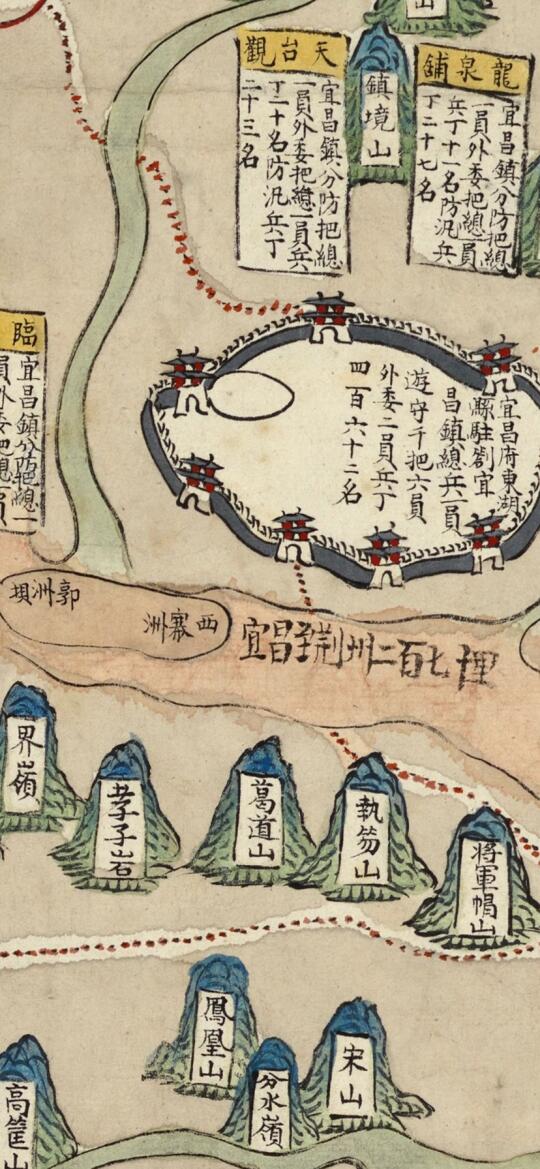 山
龍泉鋪
宜昌鎮分防把總
一員外委把總一員
兵丁十一名防汛兵
丁二十七名
鎮境山
天台觀
宜昌鎮分防把總
一員外委把總一員兵
丁二十名防汛兵丁
二十三名
臨
宜昌鎮分防把總一
員外委把總一員
宜昌府東湖
縣駐劄宜
昌鎮總兵一員
遊守千把六員
外委二員兵丁
四百六十二名
郭洲壩
西寨洲
宜昌至荆州二百七十里
界嶺
孝子岩
葛道山
執笏山
將軍帽山
鳳凰山
分水嶺
宋山
高筐山